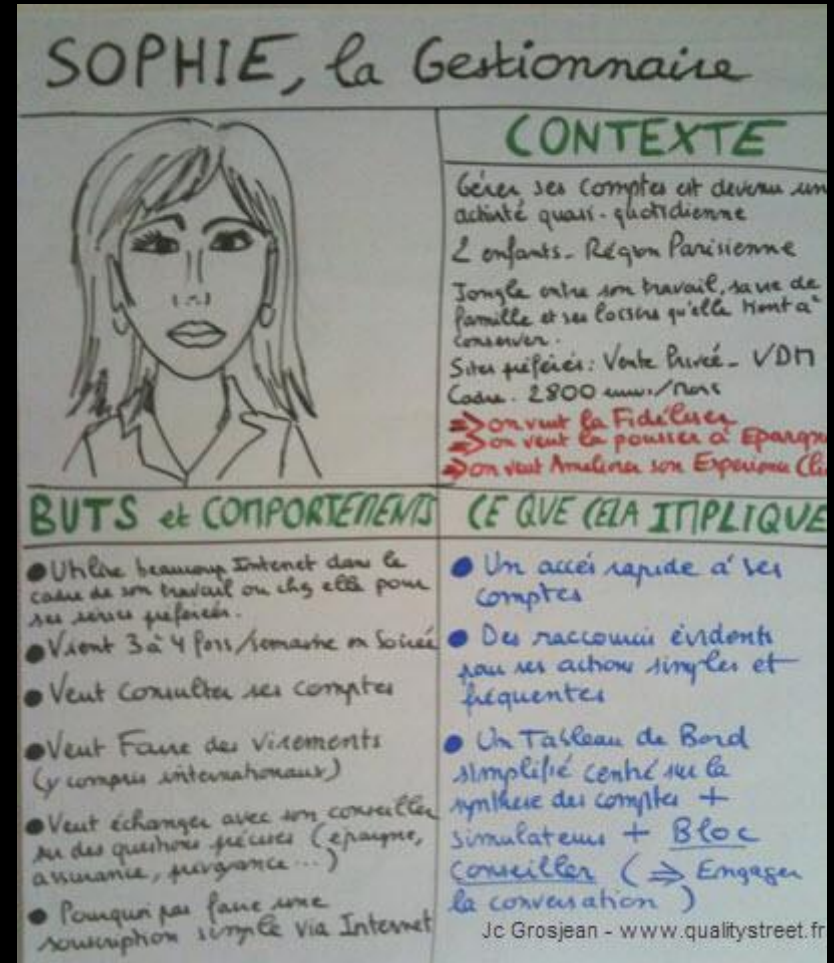 SOPHIE, la Gestionnaire
CONTEXTE
Gérer ses comptes est devenu un
activité quasi-quotidienne
2 enfants - Région Parisienne
Jongle entre son travail, sa vie de
famille et ses loisirs qu'elle tient à
conserver.
Sites préférés : Vente Privée - VDM
Cadre. 2800 euros/mois
=> on veut la Fidéliser
=> on veut la pousser à Epargn
=> on veut Améliorer son Expérience Cli
BUTS et COMPORTEMENTS
● Utilise beaucoup Internet dans le
cadre de son travail ou chez elle pour
ses préférés.
● Vient 3 à 4 fois/semaine en Soirée
● Veut Consulter ses comptes
● Veut Faire des Virements
(y compris internationaux)
● Veut échanger avec son conseiller
sur des questions précises (épargne,
assurance, prévoyance...)
● Pourquoi pas faire une
souscription simple via Internet
CE QUE CELA IMPLIQUE
● Un accès rapide à ses
comptes
● Des raccourcis évidents
pour ses actions simples et
fréquentes
● Un Tableau de Bord
simplifié centré sur la
synthèse des comptes +
simulateurs + Bloc
Conseiller (=> Engager
la conversation)
Jc Grosjean - www.qualitystreet.fr